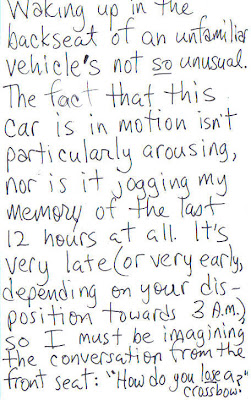 Waking up in the
backseat of an unfamiliar
vehicle's not so unusual.
The fact that this
car is in motion isn't
particularly arousing,
nor is it jogging my
memory of the last
12 hours at all. It's
very late (or very early,
depending on your dis-
position towards 3 A.M.),
so I must be imagining
the conversation from the
front seat: "How do you lose a
crossbow?"